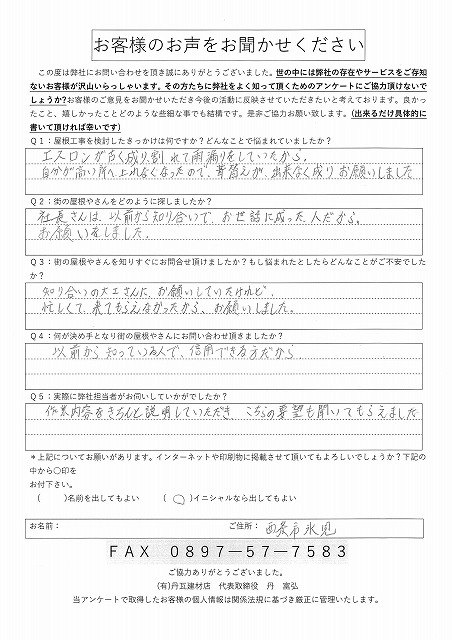 お客様のお声をお聞かせください
この度は弊社にお問い合わせを頂き誠にありがとうございました。世の中には弊社の存在やサービスをご存知
ないお客様が沢山いらっしゃいます。その方たちに弊社をよく知って頂くためのアンケートにご協力頂けないで
しょうか?お客様のご意見をお聞かせいただき今後の活動に反映させていただきたいと考えております。良かっ
たこと、嬉しかったことどのような些細な事でも結構です。是非ご協力お願い致します。(出来るだけ具体的に
書いて頂ければ幸いです)
Q1：屋根工事を検討したきっかけは何ですか?どんなことで悩まれていましたか?
エスロンが古く成り割れて雨漏りをしていたから。
自分が高い所へ上れなくなったので、葺替えが、出来なく成りお願いしました
Q2：街の屋根やさんをどのように探しましたか?
社長さんは、以前から知り合いで、お世話に成った人だから。
お願いをしました。
Q3：街の屋根やさんを知りすぐにお問合せ頂けましたか?もし悩まれたとしたらどんなことがご不安でした
か?
知り合いの大工さんに、お願いしていたけれど、
忙しくて、来てもらえなかったから、お願いしました。
Q4：何が決め手となり街の屋根やさんにお問い合わせ頂きましたか?
以前から知っている人で、信用できる方だから
Q5：実際に弊社担当者がお伺いしていかがでしたか?
作業内容をきちんと説明していただき こちらの要望も聞いてもらえました
＊上記についてお願いがあります。インターネットや印刷物に掲載させて頂いてもよろしいでしょうか?下記の
中から○印を
お付下さい。
( )名前を出してもよい (○)イニシャルなら出してもよい
お名前： ご住所： 西条市氷見
FAX 0897-57-7583
ご協力ありがとうございました。
(有)丹瓦建材店 代表取締役 丹 富弘
当アンケートで取得したお客様の個人情報は関係法規に基づき厳正に管理いたします。